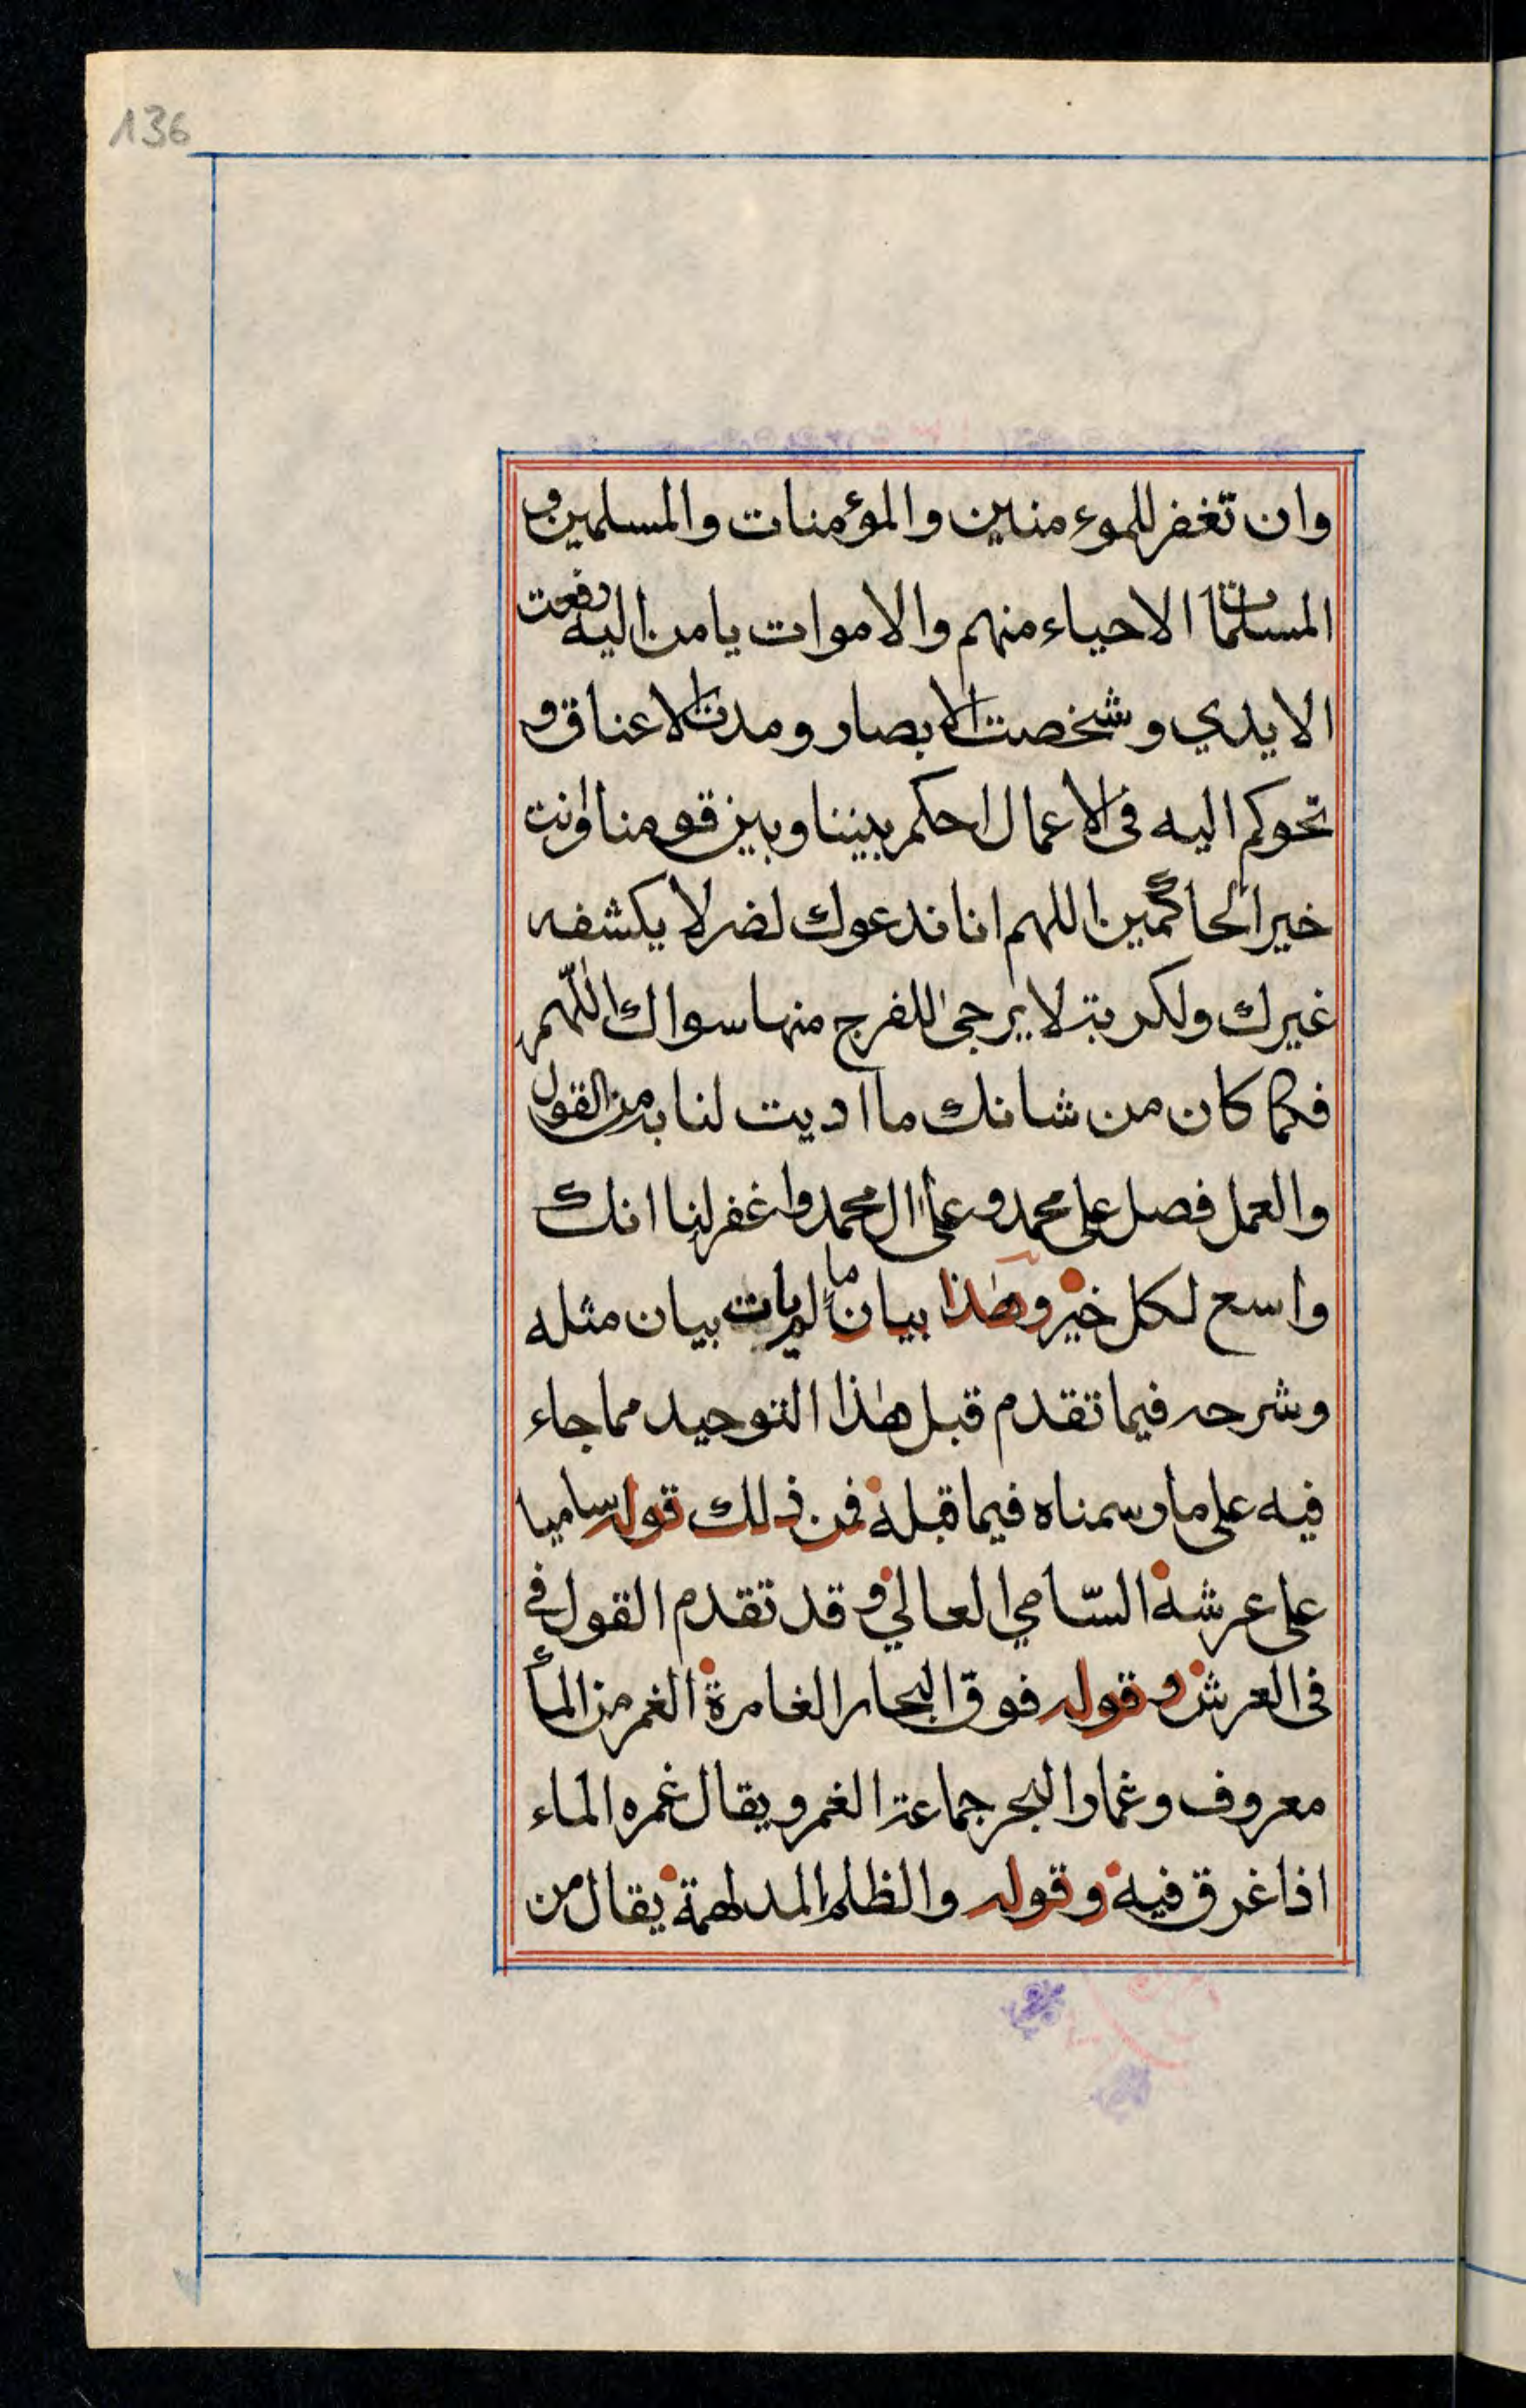 136
وان تغفر للموء منين والمؤمنات والمسلمين و
المسلمات الاحياء منهم والاموات يامن اليه رفعت
الايدي وشخصت الابصار ومدت الاعناق و
تحوكم اليه فى الاعمال احكم بيننا وبين قومنا وانت
خير الحاكمين اللهم انا ندعوك لضر لا يكشفه
غيرك ولكربة لا يرجى للفرج منها سواك اللّهم
فكما كان من شانك ما اديت لنا به من القول
والعمل فصل على محمد وعلى ال محمد واغفر لنا انك
واسع لكل خير وهذا بيان ما لم يات بيان مثله
وشرحه فيما تقدم قبل هذا التوحيد مما جاء
فيه على ما رسمناه فيما قبله فمن ذلك قوله ساميا
على عرشه السّامي العالي وقد تقدم القول فى
فى العرش وقوله فوق البحار الغامرة الغمر من المأ
معروف وغمار البحر جماعة الغمر ويقال غمره الماء
اذا غرق فيه وقوله والظلم المدلهمة يقال من